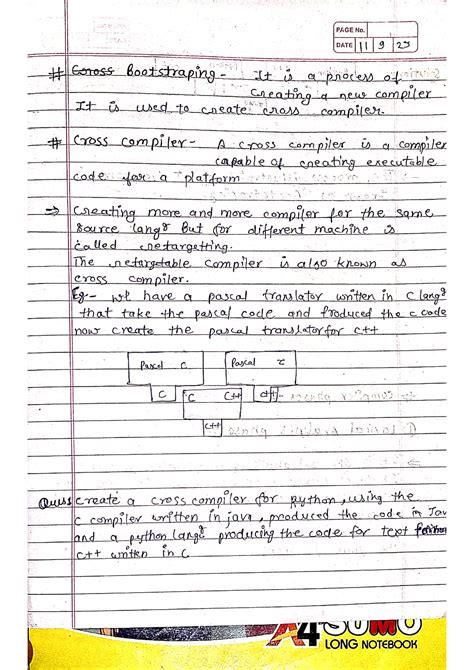 PAGE No.
DATE 11 9 23
# Bootstraping - It is a process of
creating a new compiler
It is used to create cross compiler.
# Cross compiler - A cross compiler is a compiler
capable of creating executable
code for a platform
⇒ Creating more and more compiler for the same
source lang but for different machine is
called retargetting.
The retargetable compiler is also known as
cross compiler.
Eg:- we have a pascal translator written in C lang
that take the pascal code and produced the c code
now create the pascal translator for c++
Pascal C Pascal
C C C++ c++
c++
Ques: Create a cross compiler for python, using the
c compiler written in java, produced the code in Jav
and a python lang producing the code for text
c++ written in C
A4 SUMO
LONG NOTEBOOK